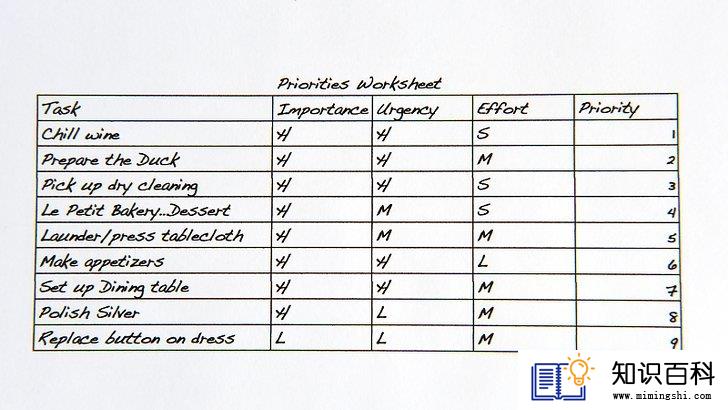 Priorities Worksheet
Task Importance Urgency Effort Priority
Chill wine H H S 1
Prepare the Duck H H M 2
Pick up dry cleaning H H S 3
Le Petit Bakery...Dessert H M S 4
Launder/press tablecloth H M M 5
Make appetizers H H L 6
Set up Dining table H H M 7
Polish Silver H L M 8
Replace button on dress L L M 9
知识百科
www.mimingshi.com